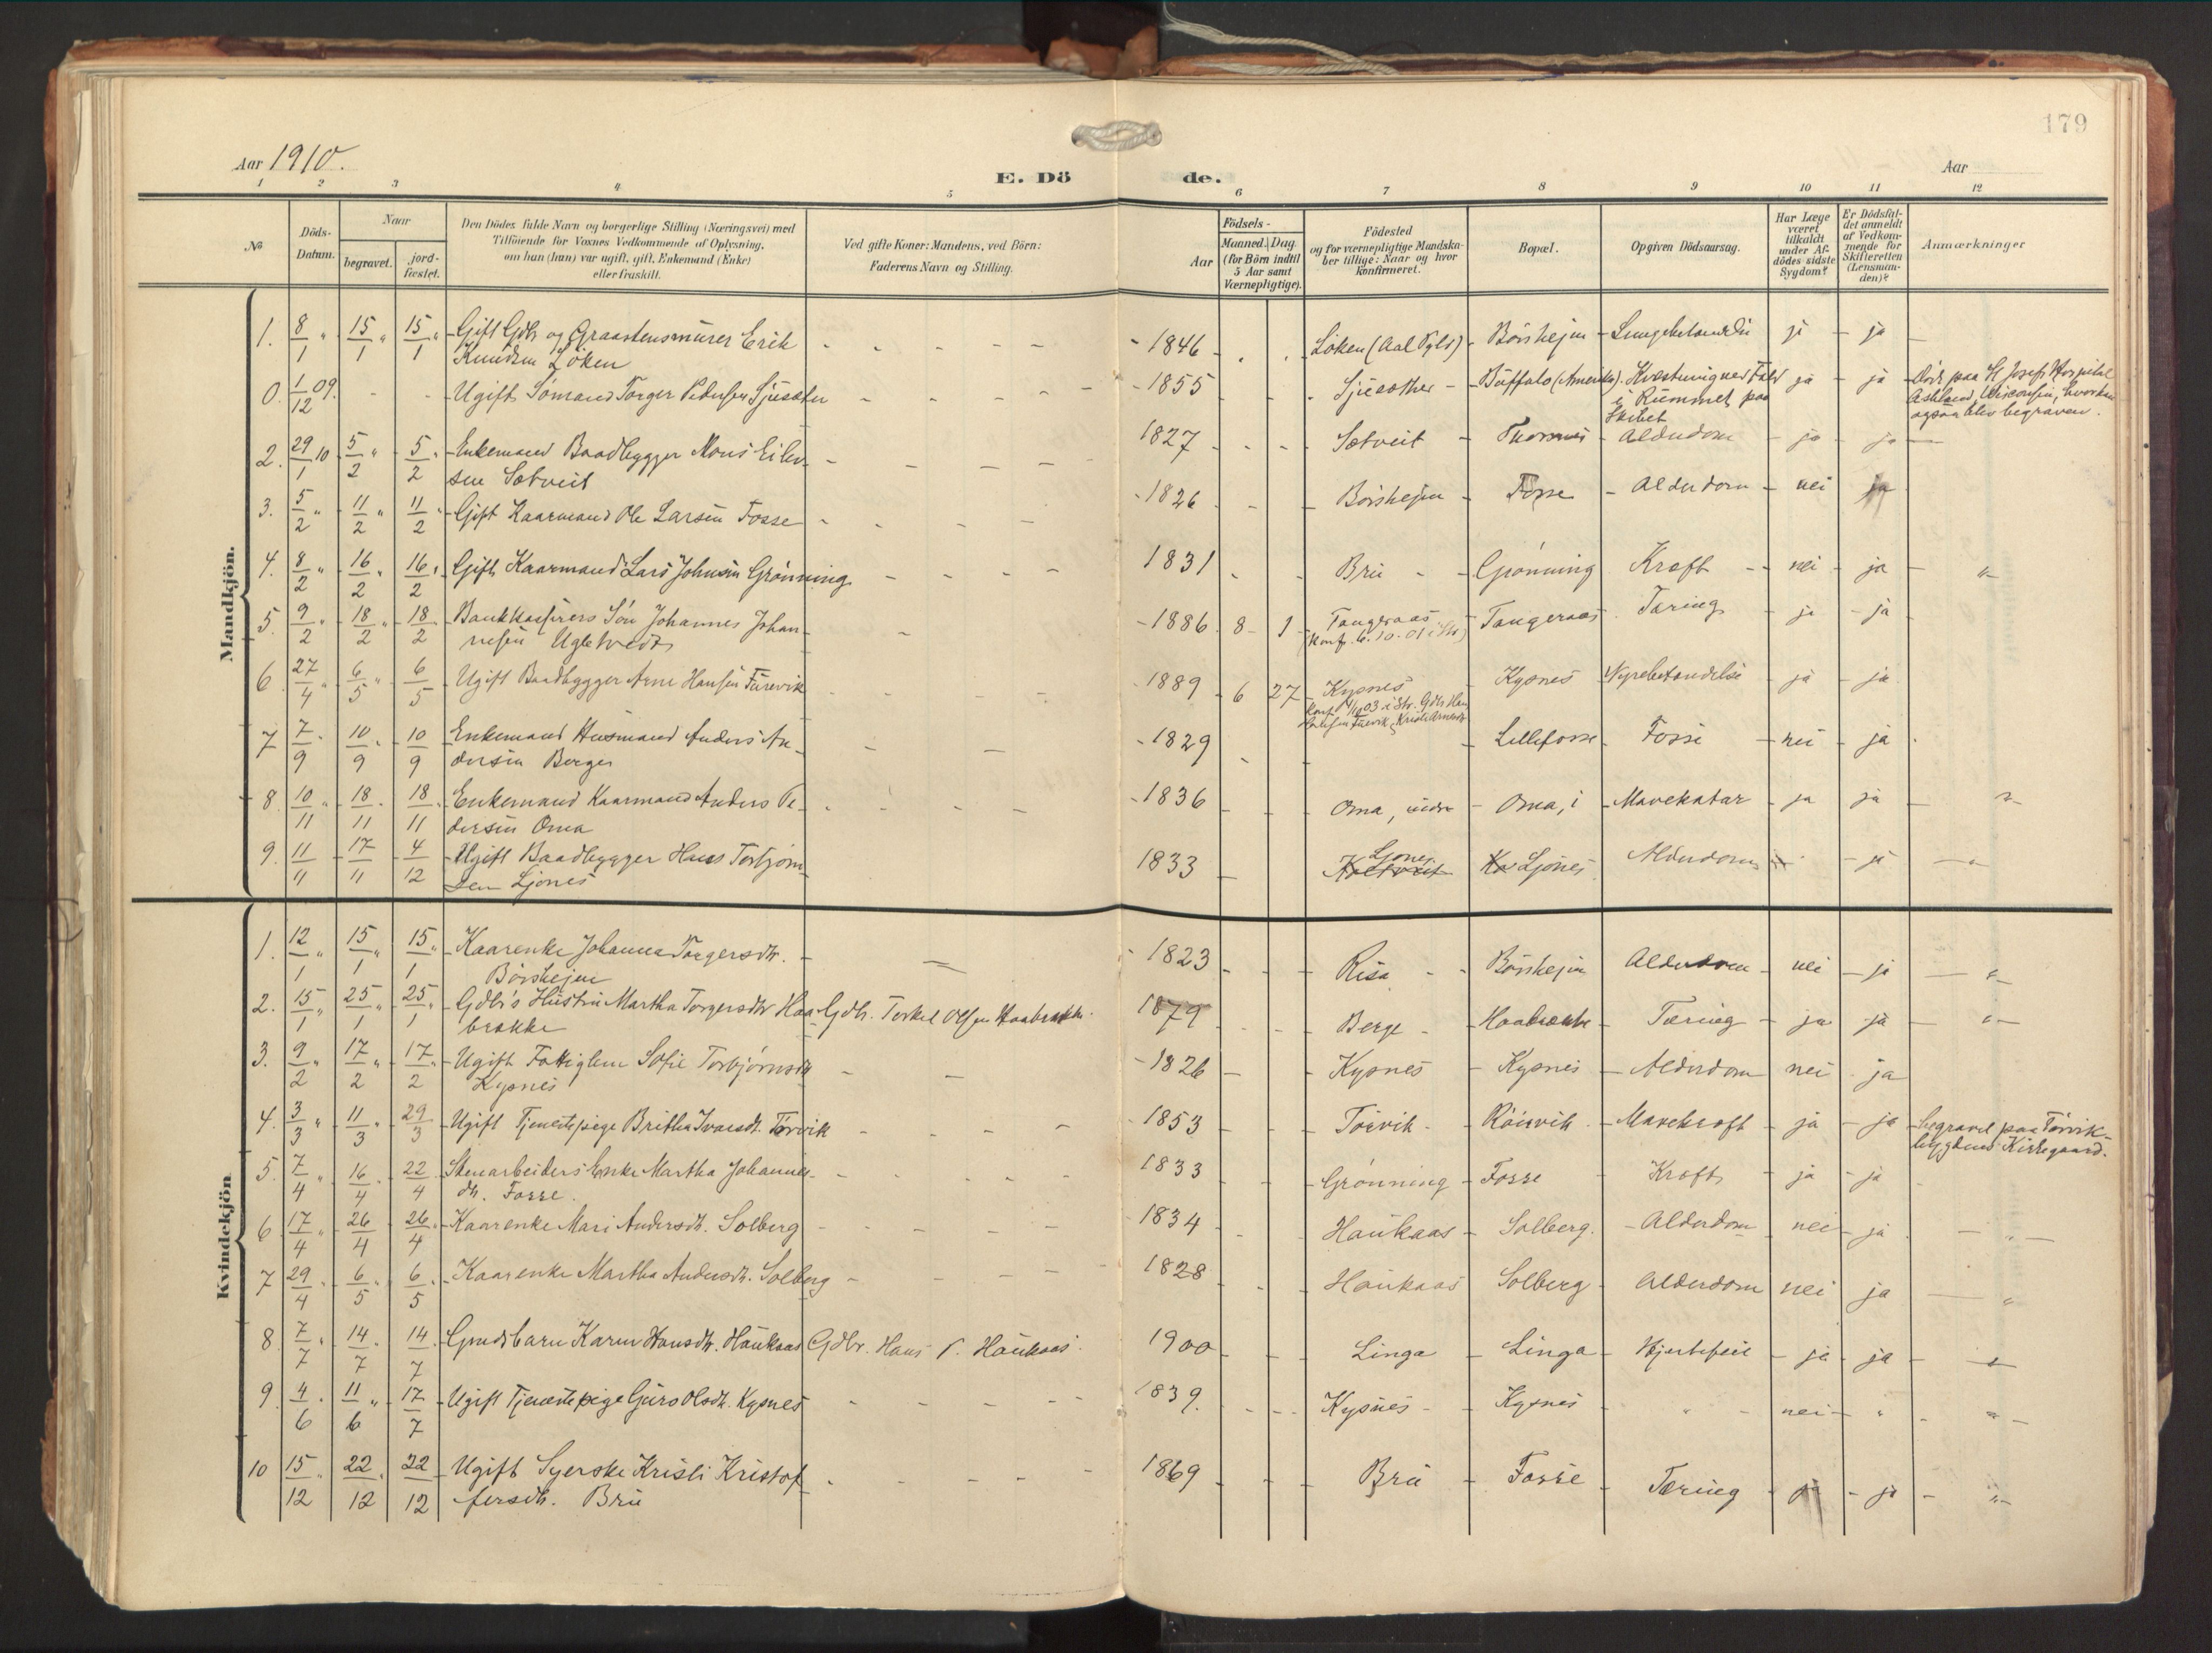 179
Aar 1910.
Aar
E. Dö de.
1 2 3 4 5 6 7 8 9 10 11 12
No
Döds-Datum.
Naar
begravet.
jord-fæstet.
Den Dödes fulde Navn og borgerlige Stilling (Næringsvei) med
Tilföiende for Voxnes Vedkommende af Oplysning,
om han (hun) var ugift, gift, Enkemand (Enke)
eller fraskilt.
Ved gifte Koner: Mandens, ved Börn:
Faderens Navn og Stilling.
Födsels-
Aar
Maaned. Dag
(for Börn indtil
5 Aar samt
Værnepligtige).
Födested
og for værnepligtige Mandska-
ber tillige: Naar og hvor
konfirmeret.
Bopæl.
Opgiven Dödsaarsag.
Har Læge
været
tilkaldt
under Af-
dödes sidste
Sygdom?
Er Dödsfal-
det anmeldt
af Vedkom-
mende for
Skifteretten
(Lensman-
den)?
Anmærkninger
Mandkjön.
1. 8/1 " 15/1 " 15/1 " Gift Gdbr og Graastensmurer Erik - 1846 Löken (Aal Pgld) Börshejm Lungebetændelse ja ja
Knudsen Löken
0. 1/12 09. Ugift Sömand Torger Pedersen Sjusæter - 1855 Sjusæther Buffalo (Amerika). Kvæstning ved Fald ja ja Döde paa St Josefs Hospital
i Rummet paa Ashland, Wisconsin, hvorhan
Skibet ogsaa blev begraven.
2. 29/1 10 5/2 " 5/2 " Enkemand Baadbygger Mons Eilev- 1827 Sætveit Alderdom ja ja
sen Sætveit
3. 5/2 " 11/2 " 11/2 " Gift Kaarmand Ole Larsen Fosse - 1826 Börshejm Fosse Alderdom nei ja
4. 8/2 " 16/2 " 16/2 " Gift Kaarmand Lars Johnsen Grönning 1831 Bru Grönning Kræft nei ja "
5. 9/2 " 18/2 " 18/2 Bankkasserers Sön Johannes Johan- 1886 8 1 Tangeraas Tangeraas Tæring ja ja
nesen Ugletvedt (Konf. 6.10.01 i Str)
6 27/4 " 6/5 " 6/5 Ugift Baadbygger Arne Hansen Furevik 1889 6 27 Kysnes Kysnes Nyrebetændelse ja ja
7 7/9 " 10/9 " 10/9 Enkemand Husmand Anders An- 1829 Lillefosse Fosse nei ja
dersen Berge
8. 10/11 " 18/11 18/11 Enkemand Kaarmand Anders Pe- 1836 Oma, indre Oma, i Mavekatar ja ja "
dersen Oma
9. 11/11 17/11 4/12 Ugift Baadbygger Hans Torbjörn- 1833 Ljones Ljones Alderdom ja "
sen Ljones
Kvindekjön
1. 12/1 " 15/1 " 15/1 " Kaarenke Johanna Torgersdtr. - 1823 Risa Börshejm Alderdom nei ja "
Börshejm
2. 15/1 " 25/1 " 25/1 " Gdbr's Hustru Martha Torgersdtr Haa- Gdbr. Torkel Olsen Haabrække. 1879 Berge Haabrække Tæring ja ja "
brække
3. 9/2 " 17/2 " 17/2 " Ugift Fattiglem Sofie Torbjörnsdtr - 1826 Kysnes Kysnes Alderdom nei ja
Kysnes
4. 3/3 " 11/3 " 29/3 Ugift Tjenestepige Britha Ivarsdt. Törvik 1853 Törvik Röisvik Mavekræft ja ja begravet paa Törvik-
bygdens Kirkegaard.
5. 7/4 " 16/4 22/4 Stenarbeiders Enke Martha Johannes- 1833 Grönning Fosse Kræft ja ja
dtr. Fosse.
6 17/4 " 26/4 26/4 " Kaarenke Mari Andersdt. Solberg 1834 Haukaas Solberg. Alderdom nei ja "
7 29/4 " 6/5 " 6/5 " Kaarenke Martha Andersdt. Solberg 1828 Haukaas Solberg Alderdom nei ja "
8 7/7 " 14/7 14/7 Gmdsbarn Karen Hansdtr. Haukaas Gdbr. Hans P. Haukaas. 1900 Linga Linga Hjertefeil ja ja "
9 4/6 11/6 " 17/7 Ugift Tjenestepige Guro Olsdt. Kysnes 1839. Kysnes Kysnes " nei " "
10 15/12 " 22/12 " 22/12 Ugift Syerske Kristi Kristof- 1869 Bru Fosse Tæring ja ja "
fersdtr. Bru